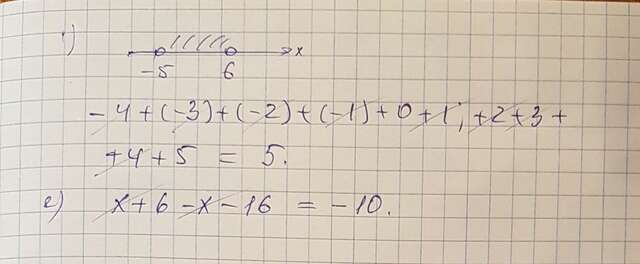 1)
x
-5 6
-4+(-3)+(-2)+(-1)+0+1,+2+3+
+4+5 = 5.
e) x+6-x-16 = -10.